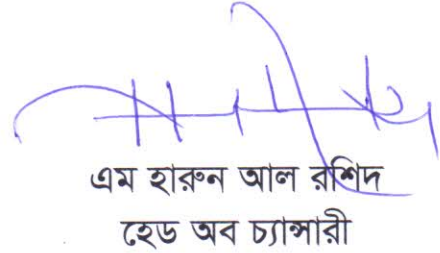 এম হারুন আল রশিদ
হেড অব চ্যান্সারী